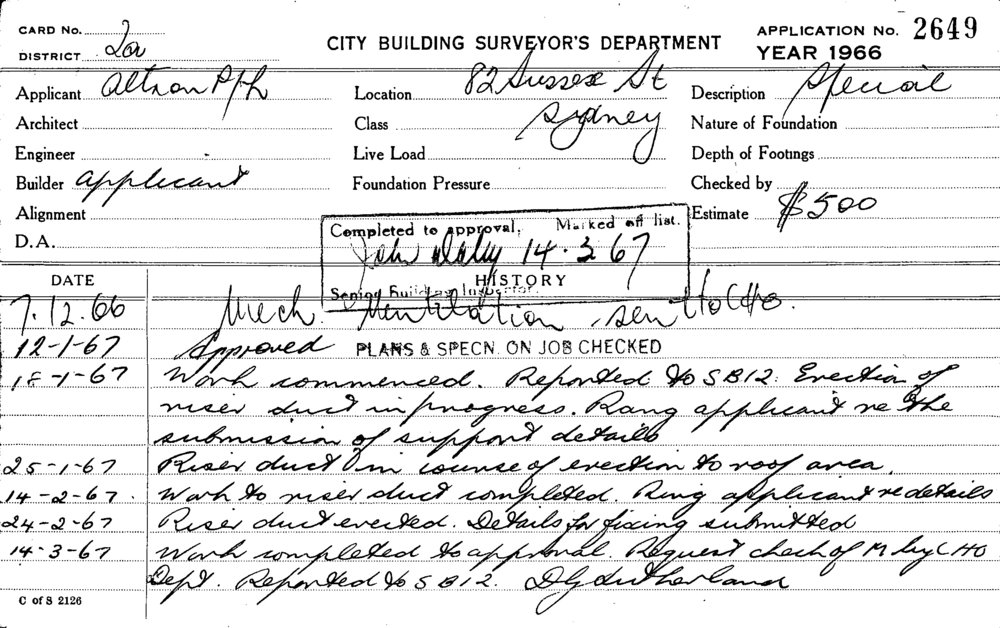 CARD No.
DISTRICT 2a
CITY BUILDING SURVEYOR'S DEPARTMENT
APPLICATION No. 2649
YEAR 1966
Applicant Altron P/L
Location 82 Sussex St
Sydney
Description Special
Architect
Class
Nature of Foundation
Engineer
Live Load
Depth of Footings
Builder applicant
Foundation Pressure
Checked by
Alignment
Estimate $500
D.A.
Completed to approval. Marked off list.
John 14.3.67
Senior Building Inspector.
DATE
HISTORY
7.12.66 Mech. Ventilation sent to CHO.
12-1-67 Approved PLANS & SPECN. ON JOB CHECKED
18-1-67 Work commenced. Reported to SB12: Erection of
riser duct in progress. Rang applicant re the
submission of support details
25-1-67 Riser duct in course of erection to roof area.
14-2-67. Work to riser duct completed. Ring applicant re details
24-2-67 Riser duct erected. Details for fixing submitted
14-3-67 Work completed to approval. Request check of M by CHO
Dept. Reported to SB12. DG Sutherland
C of S 2126